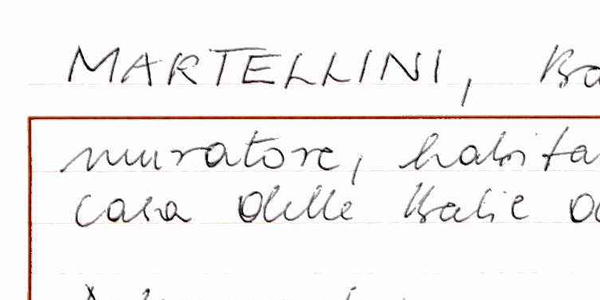 MARTELLINI,
muratore, habita
casa delle Balie